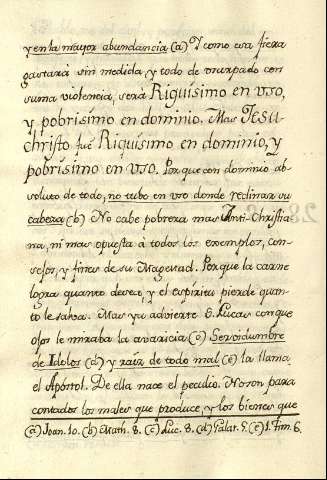 y en la mayor abundancia (a) Y como esa fiera
gastará sin medida, y todo de vsurpado con
suma violencia, será Riquísimo en vso,
y pobrísimo en dominio. Mas Jesu-
christo fué Riquísimo en dominio, y
pobrísimo en vso. Porque con dominio ab-
soluto de todo, no tubo en vso donde reclinar su
cabeza (b) No cabe pobreza mas Anti-Christia-
na, ni mas opuesta à todos los exemplos, con-
sejos, y fines de su Magestad. Porque la carne
logra quanto desea, y el espiritu pierde quan-
to le salva. Mas ya advierte S. Lucas con que
ojos le miraba la avaricia (c) Servidumbre
de Idolos (d) y raiz de todo mal (e) la llama
el Apóstol. De ella nace el peculio. No son para
contados los males que produce, y los bienes que
(a) Joan. 10. (b) Math. 8. (c) Luc. 8. (d) Galat. 5. (e) 1. Tim. 6.